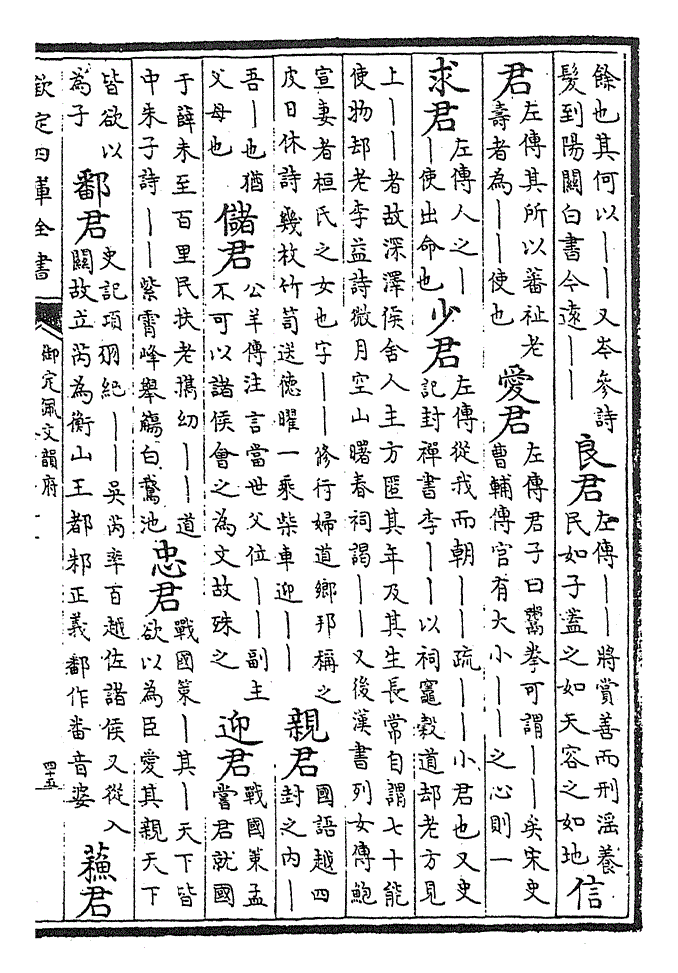 餘也其何以丨丨又岑參詩
髮到陽關白書今遠丨丨
良君
左傳丨丨將賞善而刑淫養
民如子蓋之如天容之如地
信
君
左傳其所以蕃祉老
壽者為丨丨使也
愛君
左傳君子曰鬻拳可謂丨丨矣宋史
曹輔傳官有大小丨丨之心則一
求君
左傳人之丨
丨使出命也
少君
左傳從我而朝丨丨疏丨丨小君也又史
記封禪書李丨丨以祠竈穀道却老方見
上丨丨者故深澤侯舍人主方匿其年及其生長常自謂七十能
使物却老李益詩微月空山曙春祠謁丨丨又後漢書列女傳鮑
宣妻者桓氏之女也字丨丨修行婦道鄉邦稱之
皮日休詩幾枚竹笥送德曜一乘柴車迎丨丨
親君
國語越四
封之内丨
吾丨也猶
父母也
儲君
公羊傳注言當世父位丨丨副主
不可以諸侯會之為文故殊之
迎君
戰國策孟
嘗君就國
于薛未至百里民扶老攜幼丨丨道
中朱子詩丨丨紫霄峰舉觴白鷺池
忠君
戰國策丨其丨天下皆
欲以為臣愛其親天下
皆欲以
為子
鄱君
史記項羽紀丨丨吳芮率百越佐諸侯又從入
關故立芮為衡山王都邾正義鄱作番音婆
蘓君
欽定四庫全書
御定佩文韻府
四十五